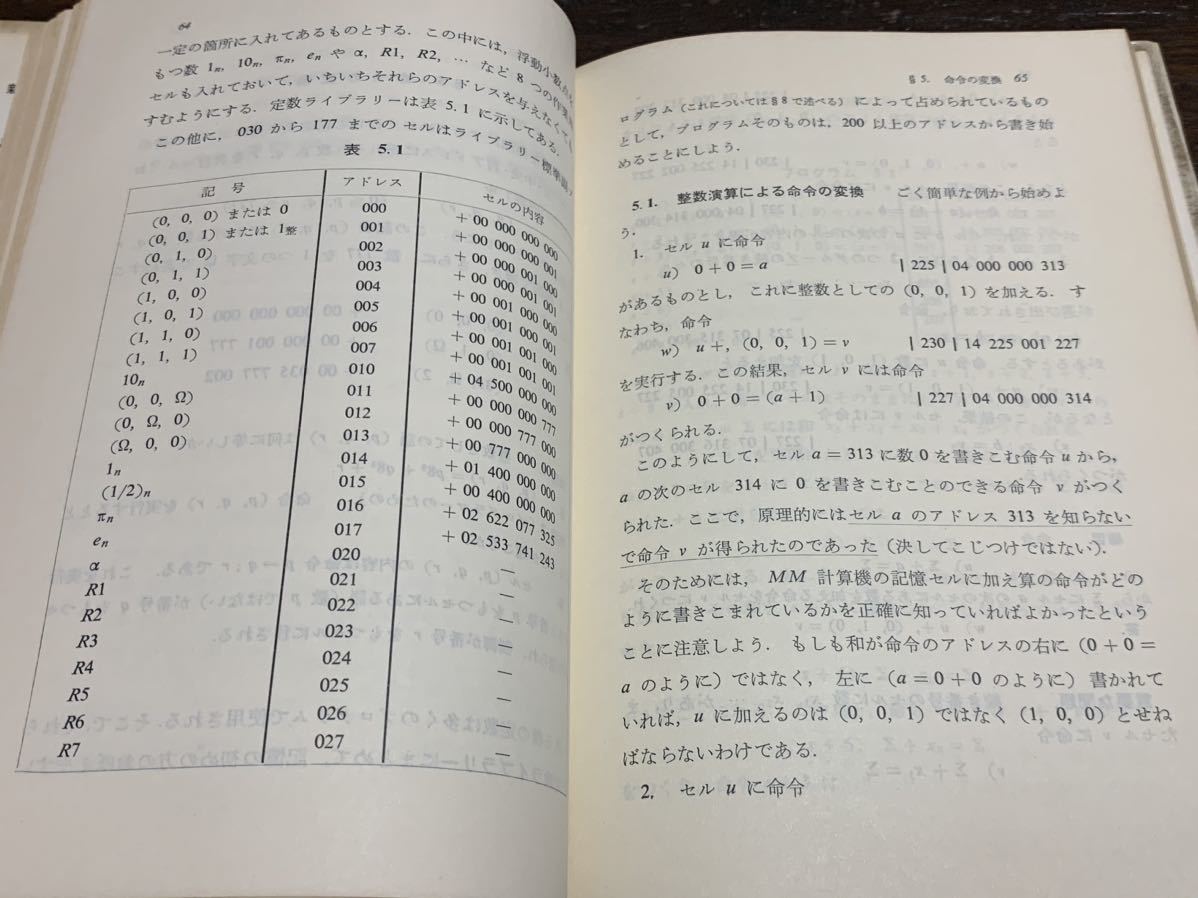 64
一定の箇所に入れてあるものとする．この中には，浮動小数点を
もつ数 1n, 10n, πn, en や α, R1, R2, … など 8 つの作業
セルも入れておいて，いちいちそれらのアドレスを与えなくても
すむようにする．定数ライブラリーは表 5.1 に示してある．
この他に，030 から 177 までの セルはライブラリー標準
表 5.1
記号 アドレス セルの内容
(0, 0, 0) または 0 000 + 00 000 000 000
(0, 0, 1) または 1整 001 + 00 000 000 001
(0, 1, 0) 002 + 00 000 001 000
(0, 1, 1) 003 + 00 000 001 001
(1, 0, 0) 004 + 00 001 000 000
(1, 0, 1) 005 + 00 001 000 001
(1, 1, 0) 006 + 00 001 001 000
(1, 1, 1) 007 + 00 001 001 001
10n 010 + 04 500 000 000
(0, 0, Ω) 011 + 00 000 000 777
(0, Ω, 0) 012 + 00 000 777 000
(Ω, 0, 0) 013 + 00 777 000 000
1n 014 + 01 400 000 000
(1/2)n 015 + 00 400 000 000
πn 016 + 02 622 077 325
en 017 + 02 533 741 243
α 020 —
R1 021 —
R2 022 —
R3 023 —
R4 024 —
R5 025 —
R6 026 —
R7 027 —
§5. 命令の変換 65
ログラム（これについては§8で述べる）によって占められているもの
として，プログラムそのものは，200 以上のアドレスから書き始
めることにしよう．
5.1. 整数演算による命令の変換 ごく簡単な例から始めよ
う．
1. セル u に命令
u) 0+0=a | 225 | 04 000 000 313
があるものとし，これに整数としての (0, 0, 1) を加える．す
なわち，命令
w) u+, (0, 0, 1)=v | 230 | 14 225 001 227
を実行する．この結果，セル v には命令
v) 0+0=(a+1) | 227 | 04 000 000 314
がつくられる．
このようにして，セル a=313 に数 0 を書きこむ命令 u から，
a の次のセル 314 に 0 を書きこむことのできる命令 v がつく
られた．ここで，原理的にはセル a のアドレス 313 を知らない
で命令 v が得られたのであった（決してこじつけではない）．
そのためには，MM 計算機の記憶セルに加え算の命令がどの
ように書きこまれているかを正確に知っていればよかったという
ことに注意しよう．もしも和が命令のアドレスの右に (0+0=
a のように) ではなく，左に (a=0+0 のように) 書かれて
いれば，u に加えるのは (0, 0, 1) ではなく (1, 0, 0) とせね
ばならないわけである．
2. セル u に命令